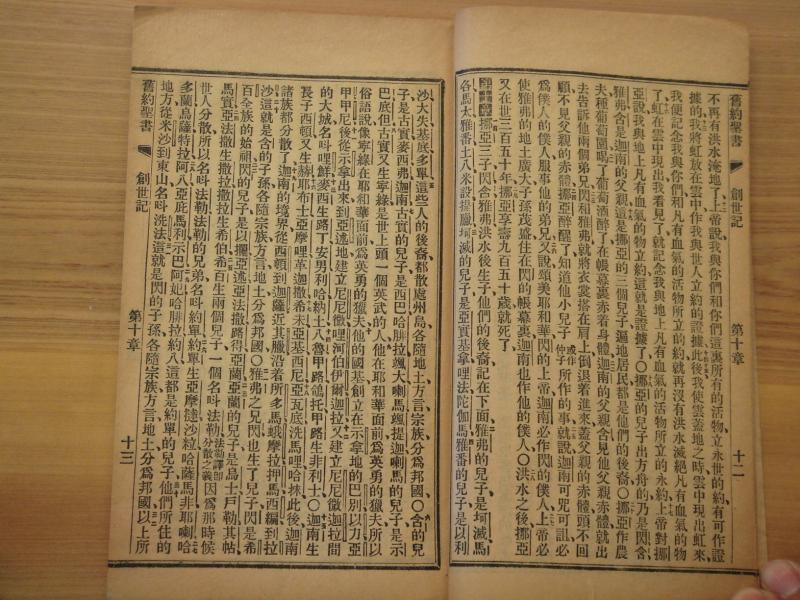 舊約聖書 創世記 第十章 十二
不再有洪水淹地了上帝說我與你們和你們這裏所有的活物立永世的約有可作證
據的我將虹放在雲中作我與世人立約的證據此後我使雲蓋地之時雲中現出虹來
我便記念我與你們和凡有血氣的活物所立的約就再沒有洪水滅絕凡有血氣的物
了虹在雲中現出我看見了就記念我與地上凡有血氣的活物所立的永約上帝對挪
亞說我與地上凡有血氣的物立約這就是證據了〇挪亞的兒子出方舟的乃是閃含
雅弗含是迦南的父親這是挪亞的三個兒子遍地居民都是他們的後裔〇挪亞作農
夫種葡萄園喝了葡萄酒醉了在帳幕裏赤着身體迦南的父親含見他父親赤體就出
去告訴他兩個弟兄閃和雅弗就將衣裳搭在肩上倒退着進來蓋父親的赤體頭不回
顧不見父親的赤體挪亞醉醒了知道他小兒子或作仲子所作的事就說迦南可咒可詛必
爲僕人的僕人服事他的弟兄又說頌美耶和華閃的上帝迦南必作閃的僕人上帝必
使雅弗的地土廣大子孫茂盛住在閃的帳幕裏迦南也作他的僕人〇洪水之後挪亞
又在世三百五十年挪亞享壽九百五十歲就死了
挪亞三子閃含雅弗洪水後生子他們的後裔記在下面雅弗的兒子是坷滅馬
各馬太雅番土八米設提臘坷滅的兒子是亞實基拿哩法陀伽馬雅番的兒子是以利
沙大失基底多單這些人的後裔都散處州島各隨地土方言宗族分爲邦國〇含的兒
子是古實麥西弗迦南古實的兒子是西巴哈腓拉颯大喇馬颯提迦喇馬的兒子是示
巴底但古實又生寧綠是世上頭一個英武的人他在耶和華面前爲英勇的獵夫所以
俗語說像寧綠在耶和華面前爲英勇的獵夫他的國基創立在示拿地的巴別以力亞
甲甲尼後從示拿出來到亞述地建立尼尼微哩河伯伊爾迦拉又建立尼尼微迦拉間
的大城名呌哩鮮麥西生路丁安男利哈納土八魯甲路鴿托甲路生非利士〇迦南生
長子西頓又生赫耶布士亞摩哩革迦撒希未亞基西尼亞瓦底洗馬哩哈抹此後迦南
諸族都分散了迦南的境界從西頓到迦薩近其臘沿着所多馬蛾摩拉押馬西編到拉
沙這就是含的子孫各隨宗族方言地土分爲邦國〇雅弗之兄閃也生了兒子閃是希
百全族的始祖閃的兒子是以攔亞述亞法撒路得亞蘭亞蘭的兒子是烏士戶勒其帖
馬實亞法撒生撒拉撒拉生希伯希百生兩個兒子一個名呌法勒法勒譯卽分散之義因爲那時候
世人分散所以名呌法勒法勒的兄弟名呌約單約單生亞摩撻沙拉哈薩馬非耶喇哈
多蘭烏薩特拉阿八亞庇馬利示巴阿妃哈腓拉約八這都是約單的兒子他們所住的
地方從米沙到東山名呌洗法這就是閃的子孫各隨宗族方言地土分爲邦國〇以上所
舊約聖書 創世記 第十章 十三